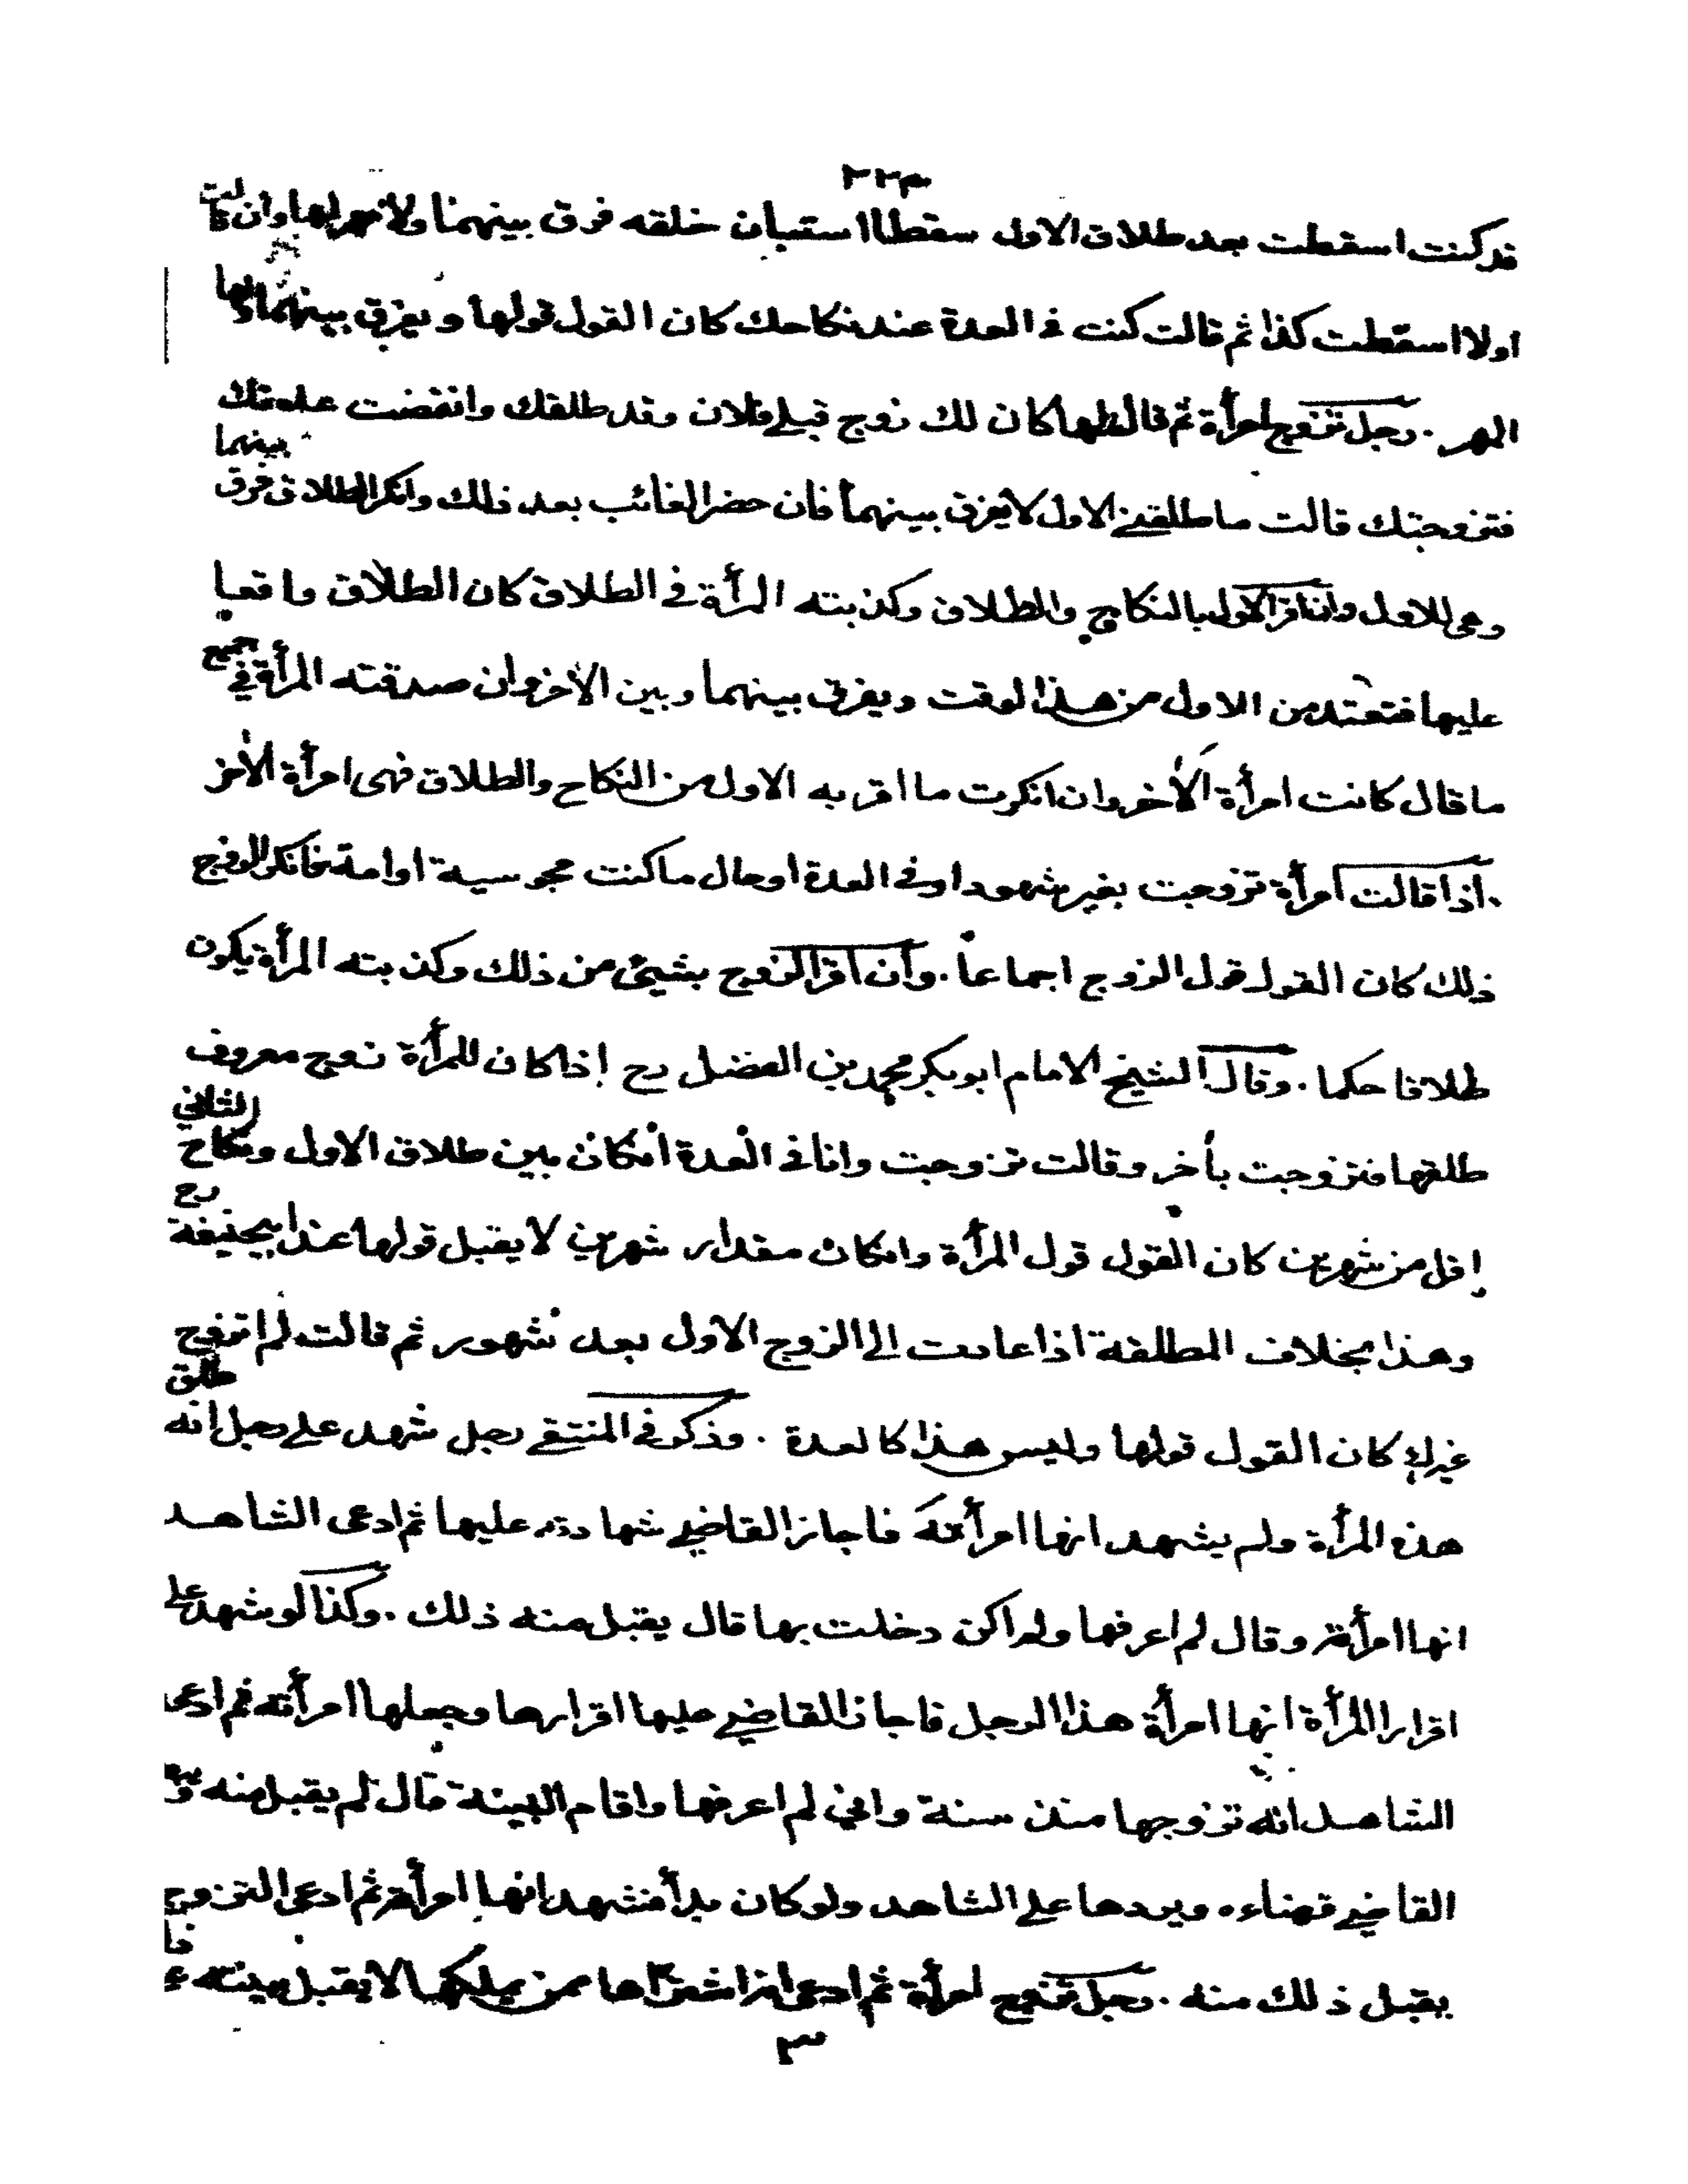 ٢٢٣
قد كنت اسقطت بعد طلاق الاول سقطا استبان خلقه فرق بينهما ولا مهر لها وان قالت
اولا اسقطت كذا ثم قالت كنت في العدة عند نكاحك كان القول قولها ويفرق بينهما ولها
المهر . رجل تزوج امرأة ثم قال لها كان لك زوج قبلي فلان وقد طلقك وانقضت عدتك
فتزوجتك قالت ما طلقني الاول لا يفرق بينهما فان حضر الغائب بعد ذلك وانكر الطلاق فرق بينهما
وهي للاول وان اقر الاول بالنكاح والطلاق وكذبته المرأة في الطلاق كان الطلاق واقعا
عليها فتعتد من الاول من هذا الوقت ويفرق بينهما وبين الآخر وان صدقته المرأة في جميع
ما قال كانت امرأة الآخر وان انكرت ما اقر به الاول من النكاح والطلاق فهي امرأة الآخر
. اذا قالت امرأة تزوجت بغير شهود او في العدة او حال ما كنت مجوسية او امة فانكر الزوج
ذلك كان القول قول الزوج اجماعا . وان اقر الزوج بشيئ من ذلك وكذبته المرأة يكون
طلاقا حكما . وقال الشيخ الامام ابو بكر محمد بن الفضل رح إذا كان للمرأة زوج معروف
طلقها فتزوجت بأخر وقالت تزوجت وانا في العدة ان كان بين طلاق الاول ونكاح الثاني
اقل من شهرين كان القول قول المرأة وان كان مقدار شهرين لا يقبل قولها عند ابيحنيفة رح
وهذا بخلاف المطلقة اذا عادت الى الزوج الاول بعد شهور ثم قالت لم اتزوج
غيرك كان القول قولها وليس هذا كالعدة . وذكر في المنتقى رجل شهد على رجل انه طلق
هذه المرأة ولم يشهد انها امرأته فاجاز القاضي شهادته عليها ثم ادعى الشاهد
انها امرأته وقال لم اعرفها ولم اكن دخلت بها قال يقبل منه ذلك . وكذا لو شهد على
اقرار المرأة انها امرأة هذا الرجل فاجاز القاضي عليها اقرارها وجعلها امرأته ثم ادعى
الشاهد انه تزوجها منذ سنة واني لم اعرفها واقام البينة قال لم يقبل منه
القاضي قضاءه ويردها على الشاهد ولو كان بدأ فشهد انها امرأته ثم ادعى التزوج
يقبل ذلك منه . رجل تزوج امرأة ثم ادعى انه اشتراها ممن يملكها لا يقبل بينته
٣